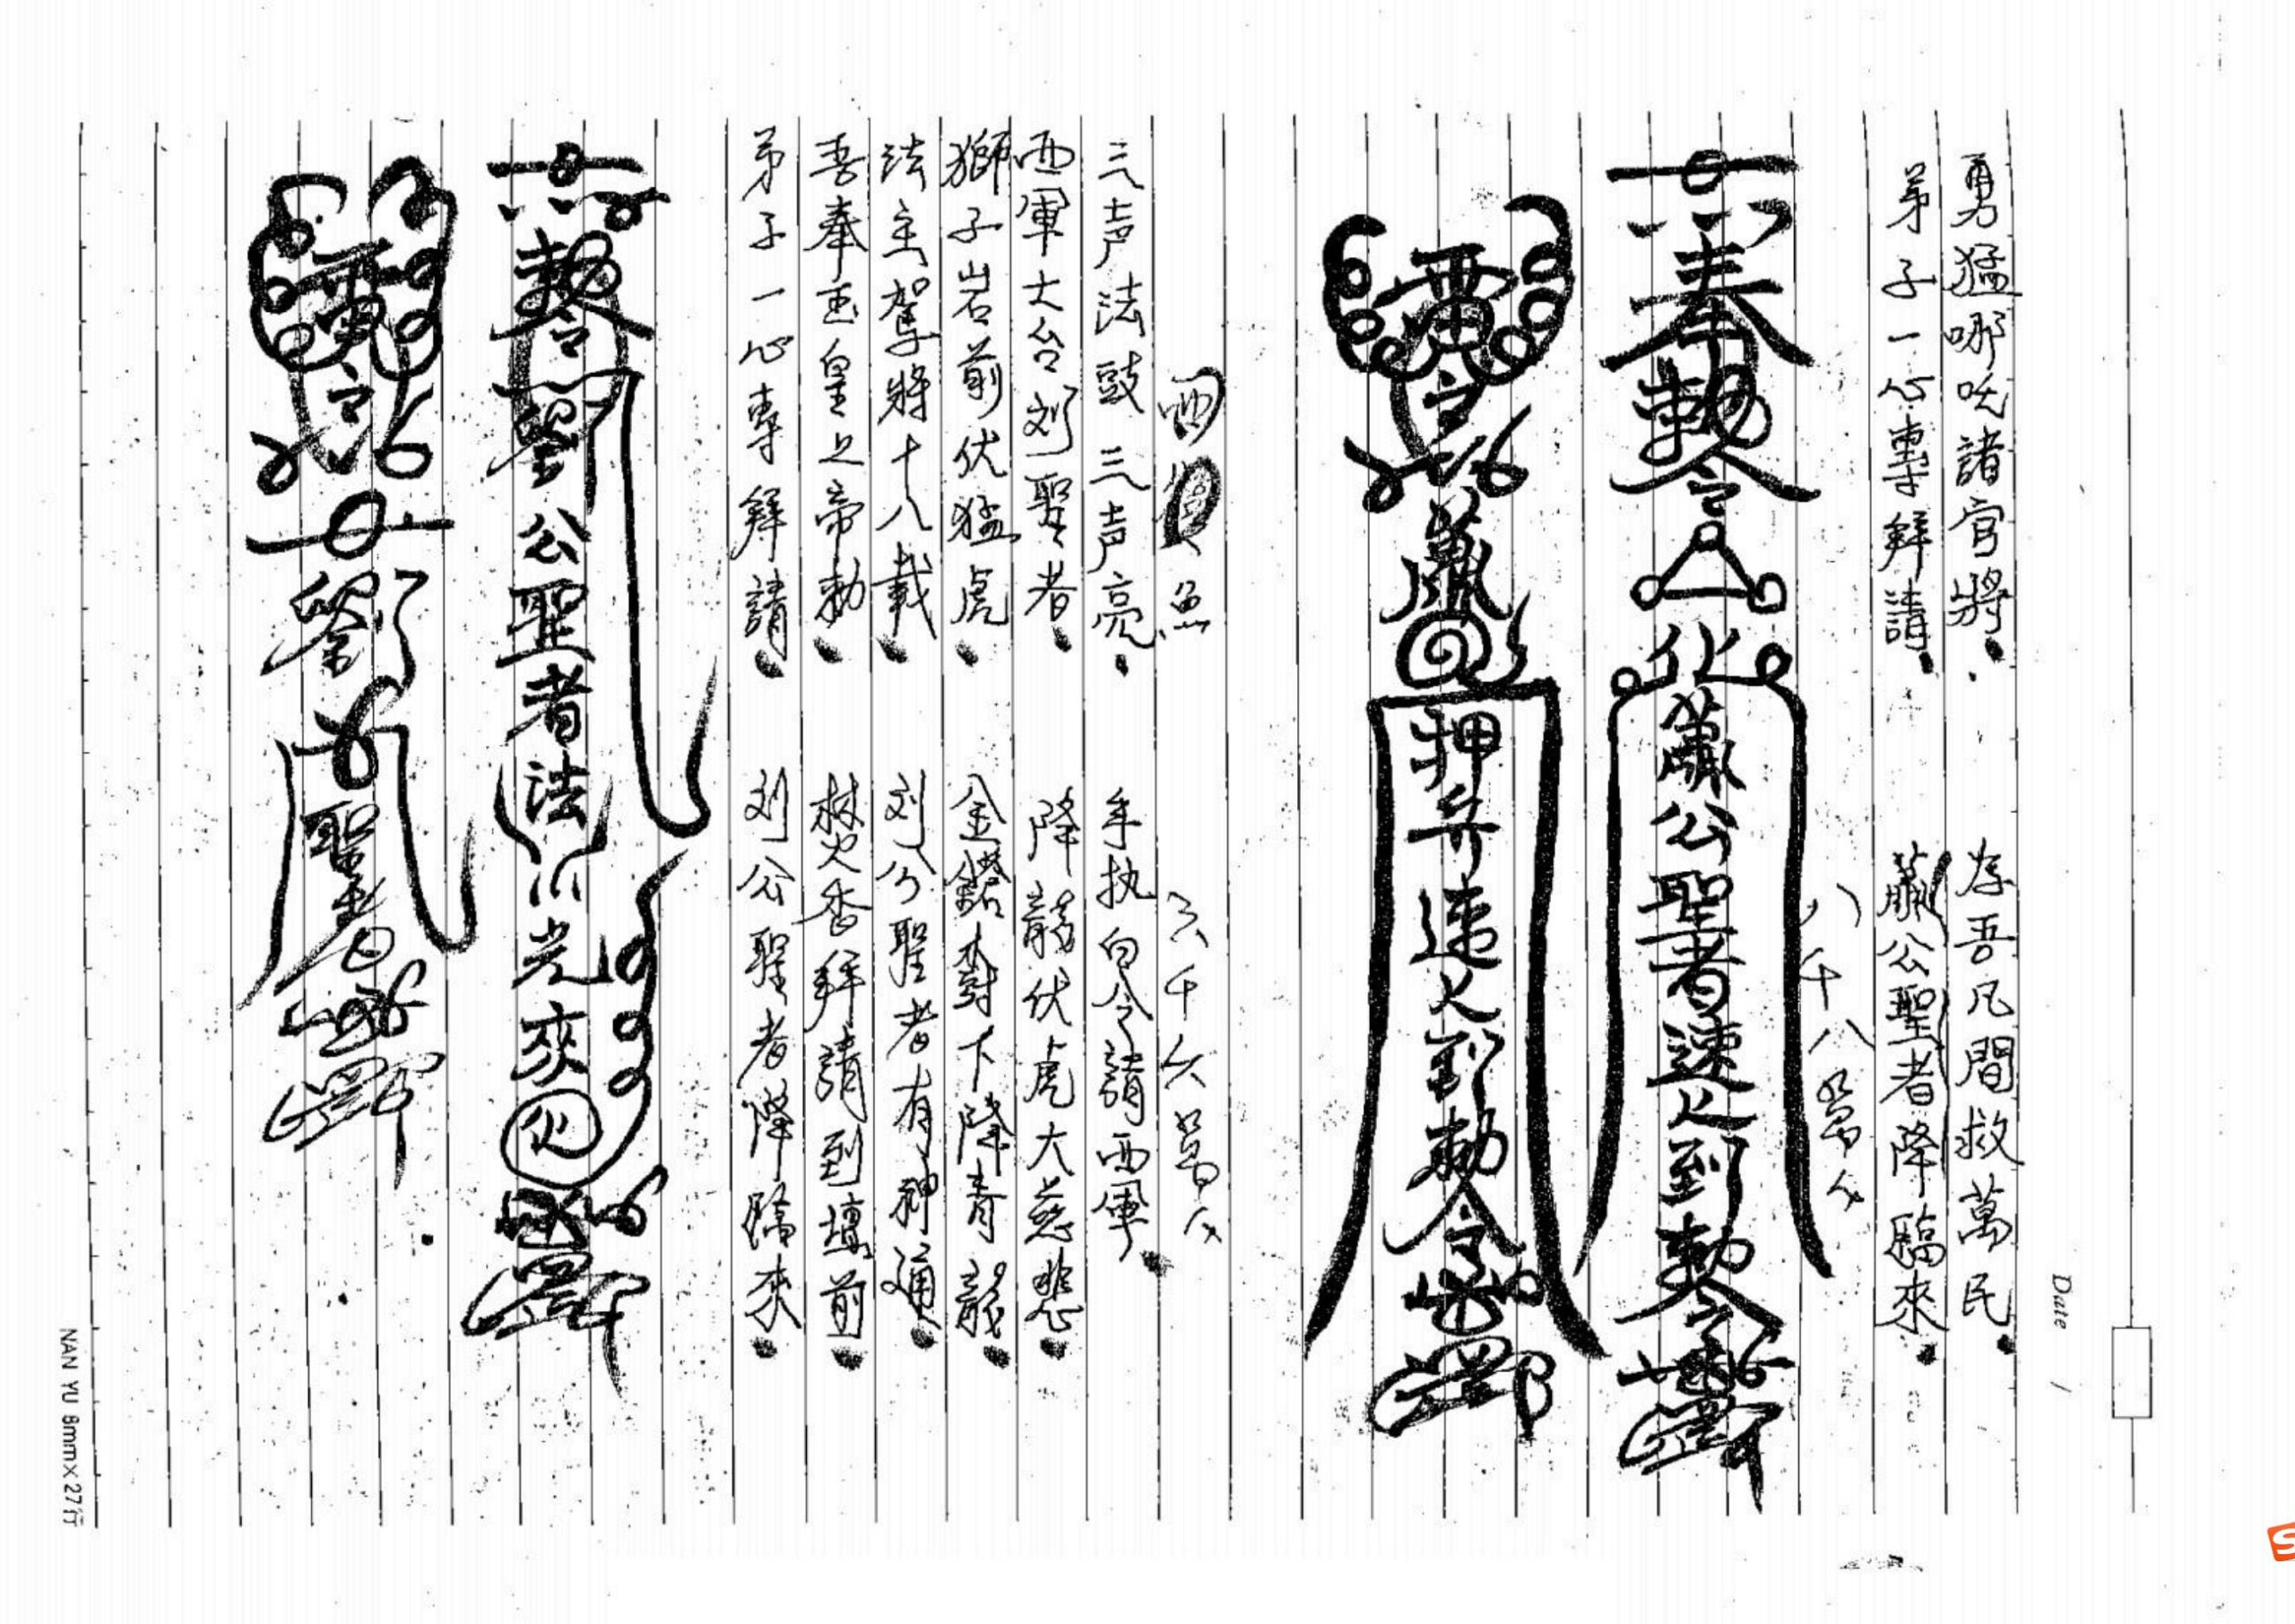 Date /
勇猛哪吒諸官將 存吾凡間救萬民
弟子一心專拜請 蕭公聖者降臨來
八千八萬人
奉勅令 化蕭公聖者速人到勅令
雷令 蕭 押兵速人到勅令
西 魚 六千六萬人
三声法鼓三声亮 手执白令請西軍
西軍大台刘聖者 降龍伏虎大慈悲
獅子岩前伏猛虎 金鎞 下降青龍
法主駕將十八載 刘公聖者有神通
吾奉玉皇上帝勅 焚火香拜請到壇前
弟子一心專拜請 刘公聖者降臨來
勅令劉公聖者法 光來化
雷令 劉 聖者
NAN YU 8mm×27行